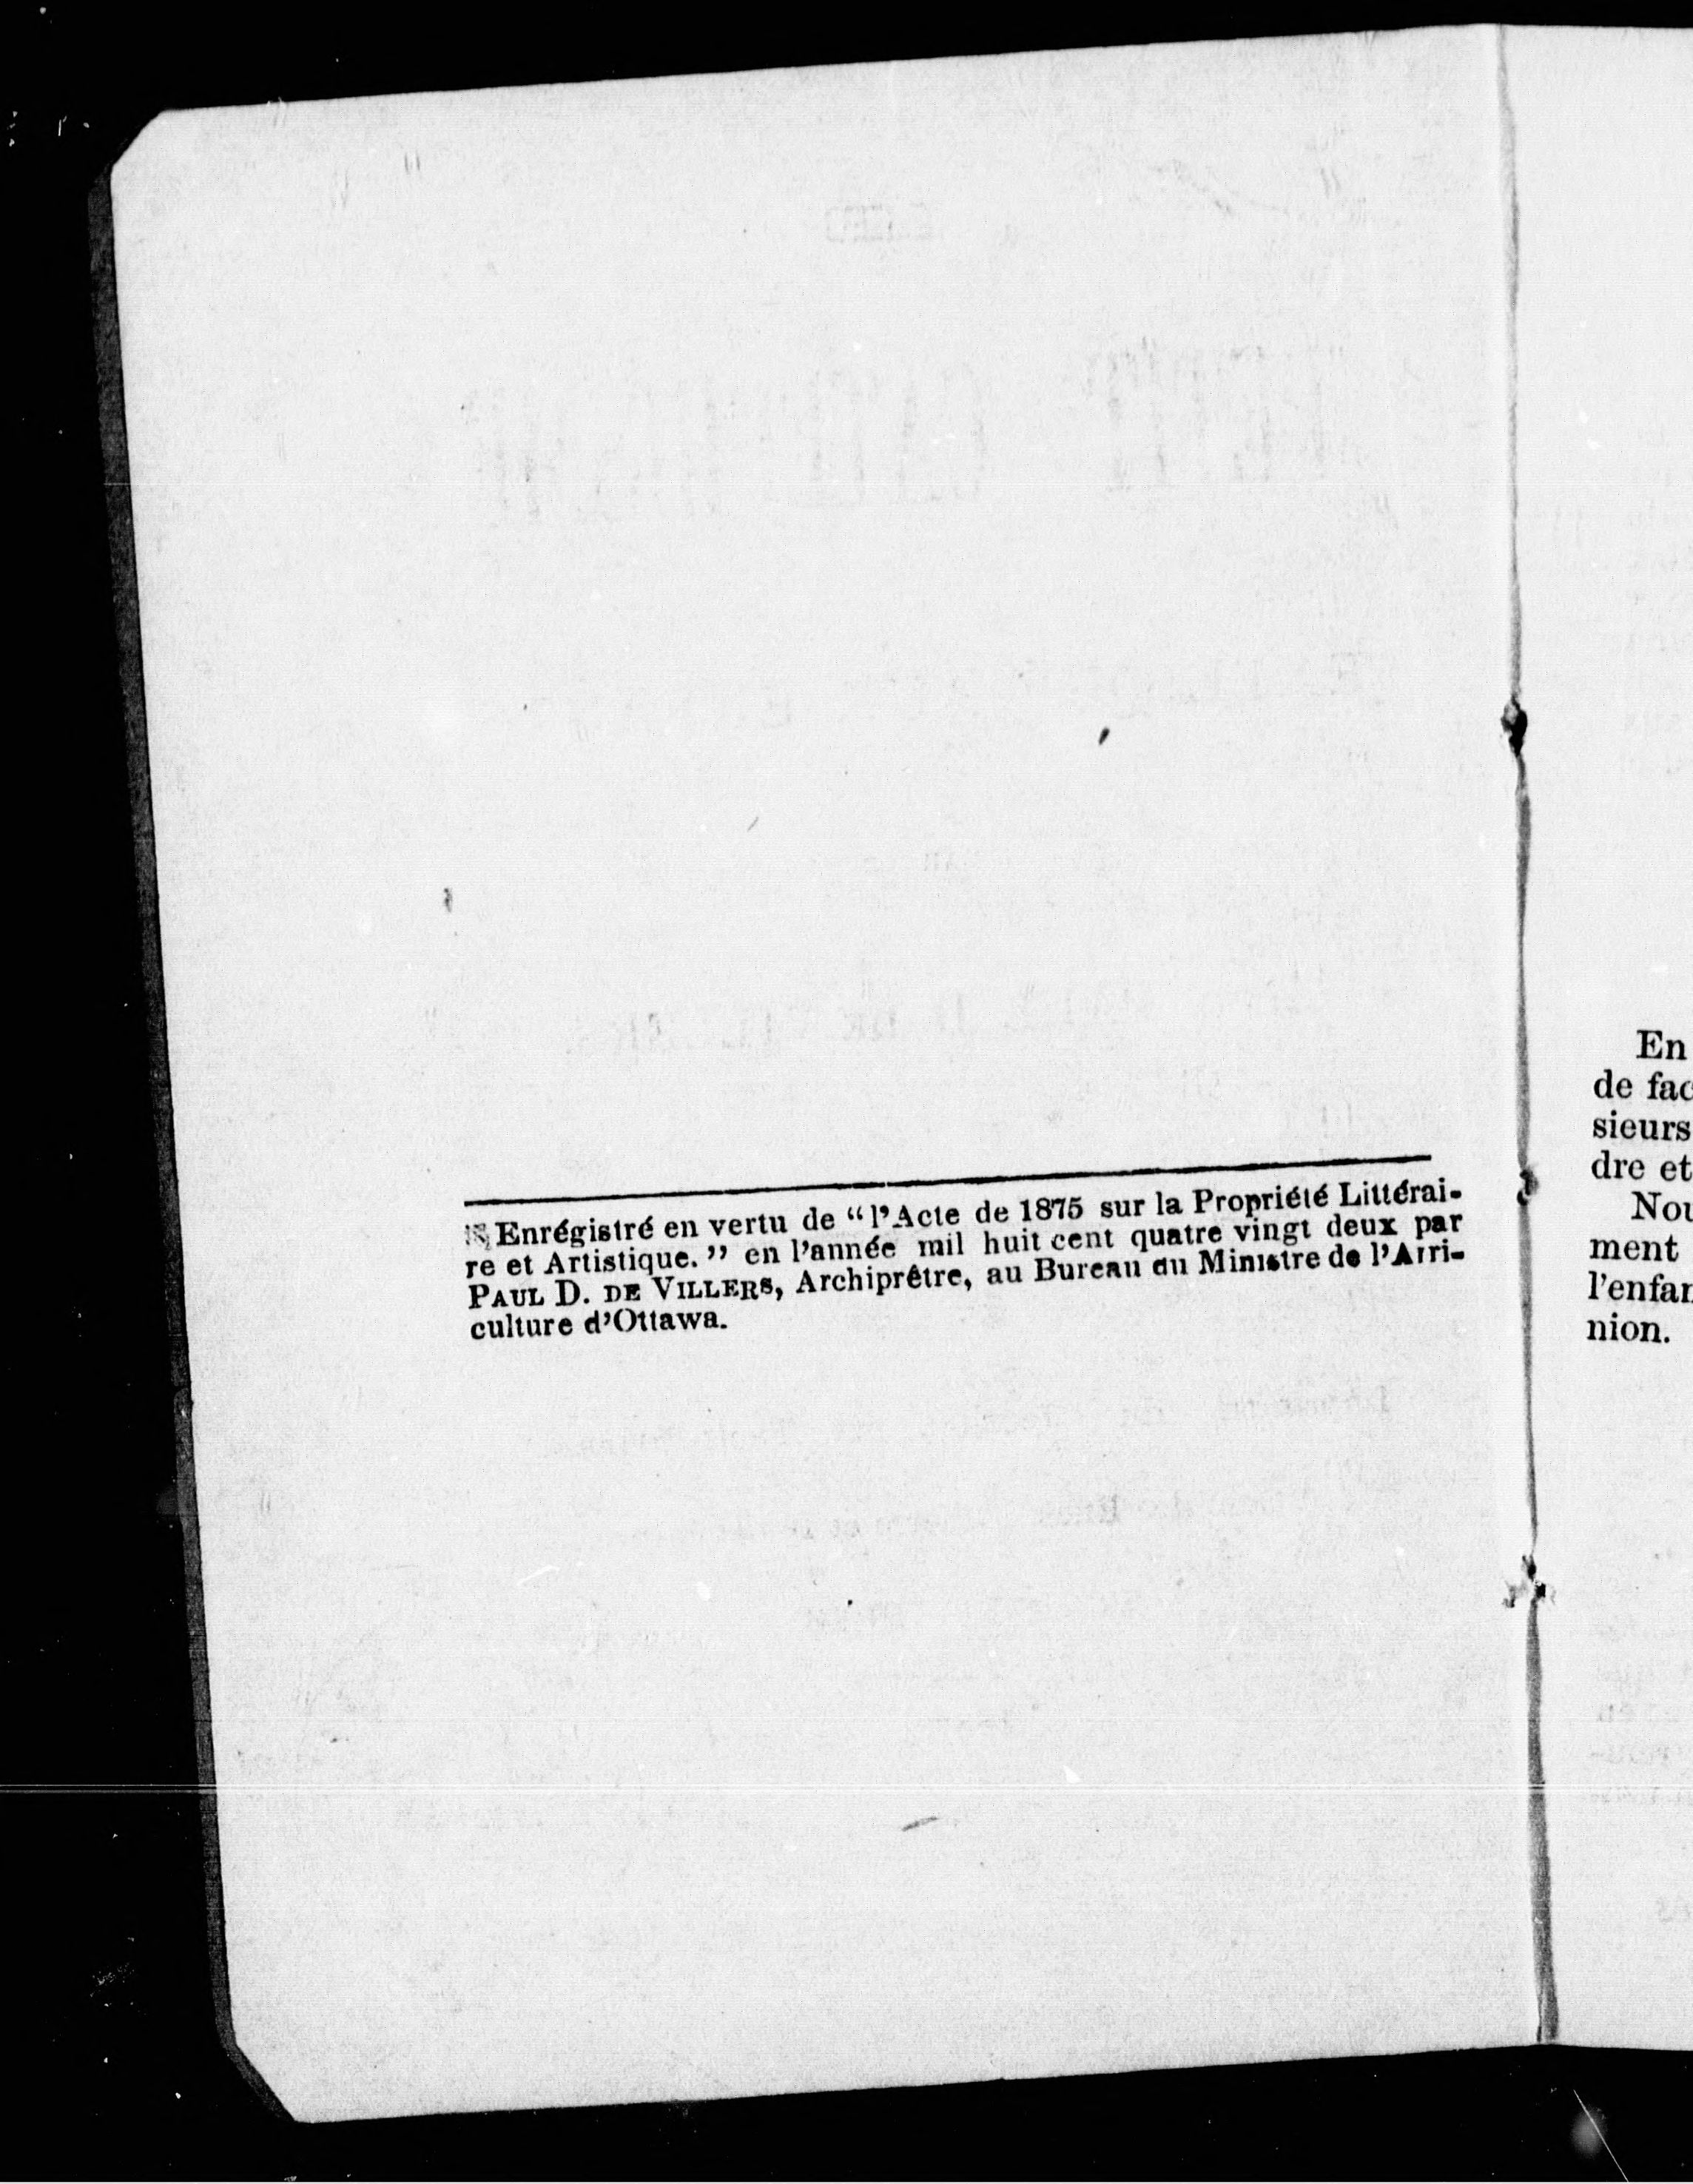 Enrégistré en vertu de “l’Acte de 1875 sur la Propriété Littérai-
re et Artistique.” en l’année mil huit cent quatre vingt deux par
PAUL D. DE VILLERS, Archiprêtre, au Bureau du Ministre de l’Arri-
culture d’Ottawa.
En
de fac
sieurs
dre et
Nou
ment
l’enfan
nion.